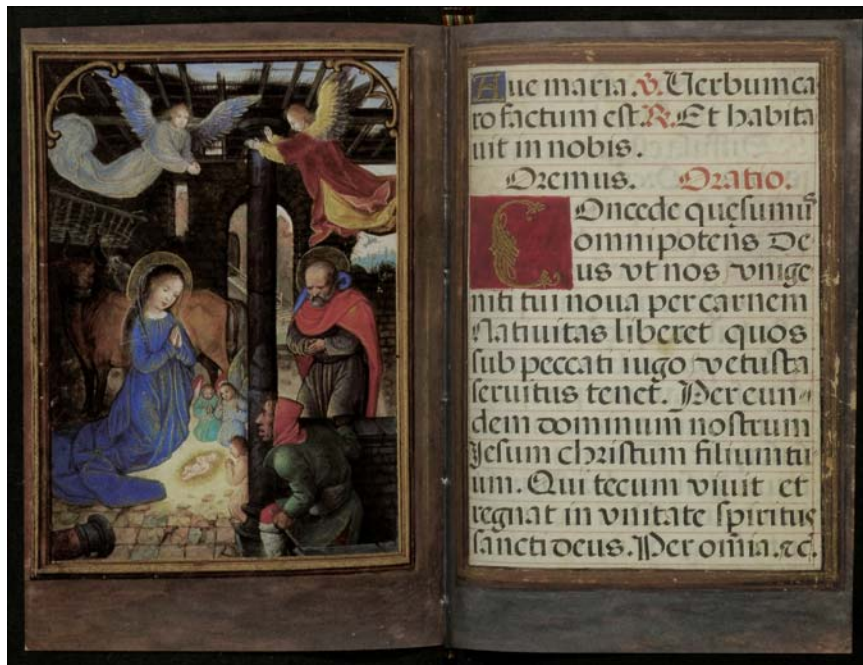 Aue maria ℣. Uerbum ca
ro factum est. ℟. Et habita
uit in nobis.
Oremus. Oratio.
Concede quęsumꝰ
omnipotens̄ De-
us vt nos vnige
niti tui noua per carnem
Natiuitas liberet quos
sub peccati iugo vetusta
seruitus tenet. Per eun-
dem dominum nostrum
Jesum christum filium tu
um. Qui tecum viuit et
regnat in vnitate spiritus
sancti deus. Per oīnia. ⁊c.